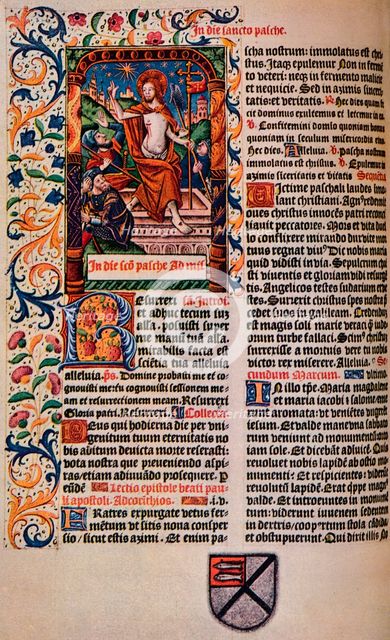 In die sancto pasche.
In die scō pasche Ad miſ
Resurrexi Introit
et adhuc tecum sum
alla. posuisti super
me manū tuā alla.
mirabilis facta est
scietīa tua alleluia
alleluia. pš. Domine probasti me et
cognouisti me: tu cognouisti sessionem meam
et resurrectionem meam. Resurrexi
Gloria patri. Resurrexi. Collecta.
Deus qui hodierna die per vni
genitum tuum eternitatis no
bis aditum deuicta morte reserasti:
vota nostra que preueniendo aspi
ras/etiam adiuuādo prosequere. P
eundē Lectio epistole beati pau
li apostoli. Ad corīthios. i. v.
Fratres expurgate vetus fer
mētum vt sitis noua consper
sio/sicut estis azimi. Et enim pa
scha nostrum: immolatus est chri
stus. Itaq; epulemur Non in ferme
to veteri: neq; in fermento malicie
et nequicie. Sed in azimis sinceri
tatis: et veritatis. Hec dies quam fe
cit dominus exultemus et letemur in ea
v. Confitemini domino quoniam bonus
quoniam in seculum misericordia eius
Hec dies. Alleluia. v. pascha nostrum
immolatus est christus. v. Epulemur
azimis sinceritatis et vitatis Sequētia
Victime paschali laudes immo
lant christiani. Agnꝰ redemit
oues christus innocēs patri reconci
liauit peccatores. Mors et vita duel
lo conflixere mirando dux vite mor
tuus regnat viuꝰ. Dic nobis maria
quid vidisti in via. Sepulcrum chri
sti viuentis et gloriam vidi resurgē
tis. Angelicos testes sudarium et ve
stes. Surrexit christus spes nostra
cedet suos in galileam. Credendum
est magis soli marie veraci quā iude
orum turbe fallaci. Scimꝰ christum
surrexisse a mortuis vere tu nobis
victor rex miserere. Alleluia. Se
cundum Marcum.
In illo tp̄e. Maria magdalene
et maria iacobi et salome eme
runt aromata: vt veniētes vngerēt
iesum. Et valde mane vna sabbato
rum veniunt ad monumentum
iam sole. Et dicebāt adinuicē. Quis
reuoluet nobis lapidē ab ostio mo
numenti: Et respicientes: viderunt
reuolutum lapidē. Erat q̄ppe magnꝰ
valde. Et introeuntes in monumen
tum: viderunt iuuenem sedentem
in dextris/coopertum stola candida
et obstupuerunt. Qui dixit illis
heritage images